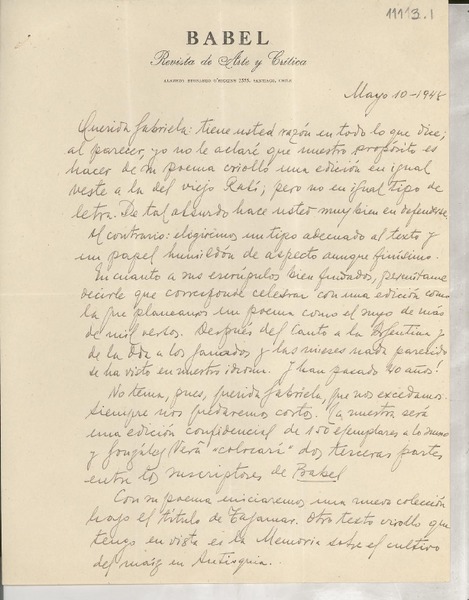 11113.1
BABEL
Revista de Arte y Crítica
ALAMEDA BERNARDO O'HIGGINS SANTIAGO, CHILE
Mayo 10-1948
Querida Gabriela: tiene usted razón en todo lo que dice;
al parecer, yo no le aclaré que nuestro propósito es
hacer de su poema criollo una edición en igual
veste a la del viejo Kali; pero no en igual tipo de
letra. De tal absurdo hace usted muy bien en defenderse.
Al contrario: eligiremos un tipo adecuado al texto y
un papel humildón de aspecto aunque finísimo.
En cuanto a sus escrúpulos bien fundados, permítame
decirle que corresponde celebrar con una edición como
la que planeamos un poema como el suyo de más
de mil versos. Después del Canto a la Argentina y
de la Oda a los ganados y las mieses nada parecido
se ha visto en nuestro idioma. Y han pasado 40 años!
No tema, pues, querida Gabriela, que nos excedamos.
Siempre nos quedaremos cortos. La nuestra será
una edición confidencial de 150 ejemplares a lo sumo
y González Vera "colocará" dos terceras partes
entre los suscriptores de Babel
Con su poema iniciaremos una nueva colección
bajo el título de Tajamar. Otro texto criollo que
tengo en vista es la Memoria sobre el cultivo
del maíz en Antioquia.